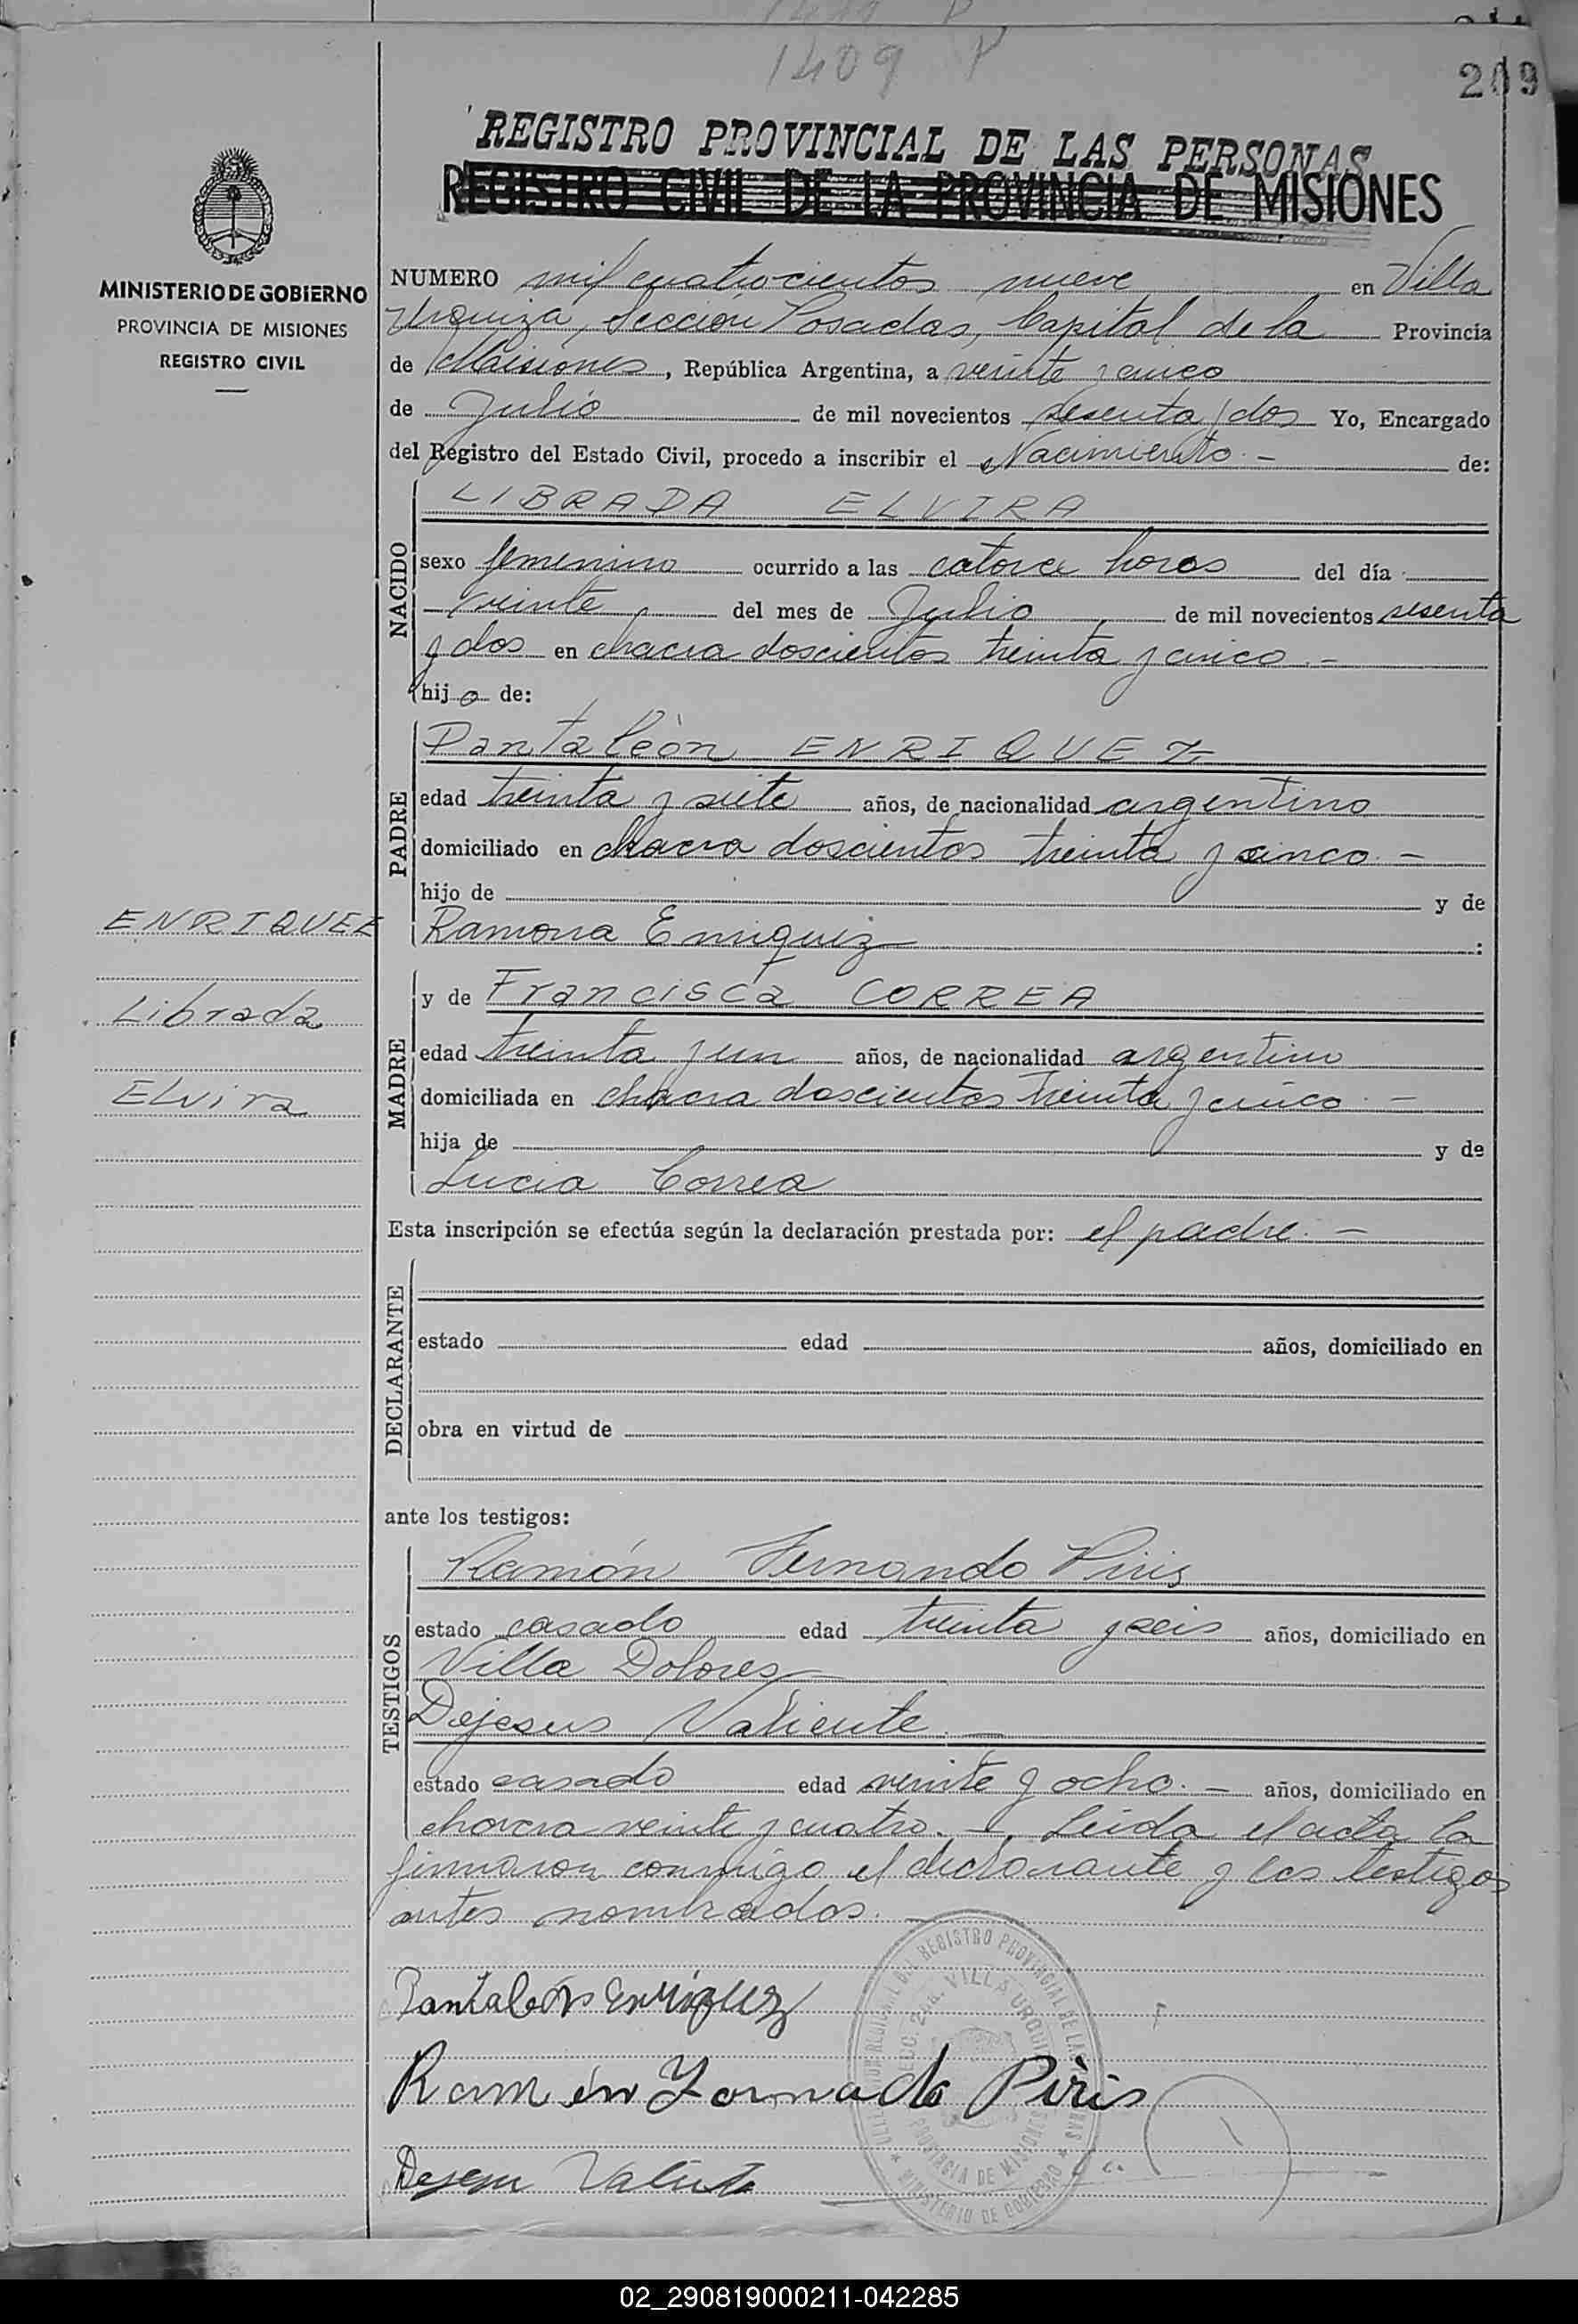 1409 P
209
REGISTRO PROVINCIAL DE LAS PERSONAS
REGISTRO CIVIL DE LA PROVINCIA DE MISIONES
MINISTERIO DE GOBIERNO
PROVINCIA DE MISIONES
REGISTRO CIVIL
NUMERO mil cuatrocientos nueve en Villa
Urquiza, Sección Posadas, Capital de la Provincia
de Misiones, República Argentina, a veinte y cinco
de Julio de mil novecientos sesenta y dos Yo, Encargado
del Registro del Estado Civil, procedo a inscribir el Nacimiento.- de:
NACIDO
LIBRADA ELVIRA
sexo femenino ocurrido a las catorce horas del día
veinte, del mes de Julio, de mil novecientos sesenta
y dos en chacra doscientos treinta y cinco.-
hija de:
PADRE
Pantaleòn ENRIQUEZ
edad treinta y siete años, de nacionalidad argentino
domiciliado en chacra doscientos treinta y cinco.-
hijo de y de
Ramona Enriquez :
ENRIQUEZ
Librada
Elvira
MADRE
y de Francisca CORREA
edad treinta y un años, de nacionalidad argentino
domiciliada en chacra doscientos treinta y cinco.-
hija de y de
Lucia Correa
Esta inscripción se efectúa según la declaración prestada por: el padre.-
DECLARANTE
estado edad años, domiciliado en
obra en virtud de
ante los testigos:
TESTIGOS
Ramón Fernando Piris
estado casado edad treinta y seis años, domiciliado en
Villa Dolores
Dejesus Valiente.-
estado casado edad veinte y ocho.- años, domiciliado en
chacra veinte y cuatro.- Leida el acta la
firmaron conmigo el declarante y los testigos
antes nombrados.-
Pantaleón Enriquez
Ramón Fornado Piris
Dejesu Valiente
DELEGACION REGIONAL DEL REGISTRO PROVINCIAL DE LAS PERSONAS
SECC. 2da. VILLA URQUIZA
PROVINCIA DE MISIONES
MINISTERIO DE GOBIERNO
02_290819000211-042285